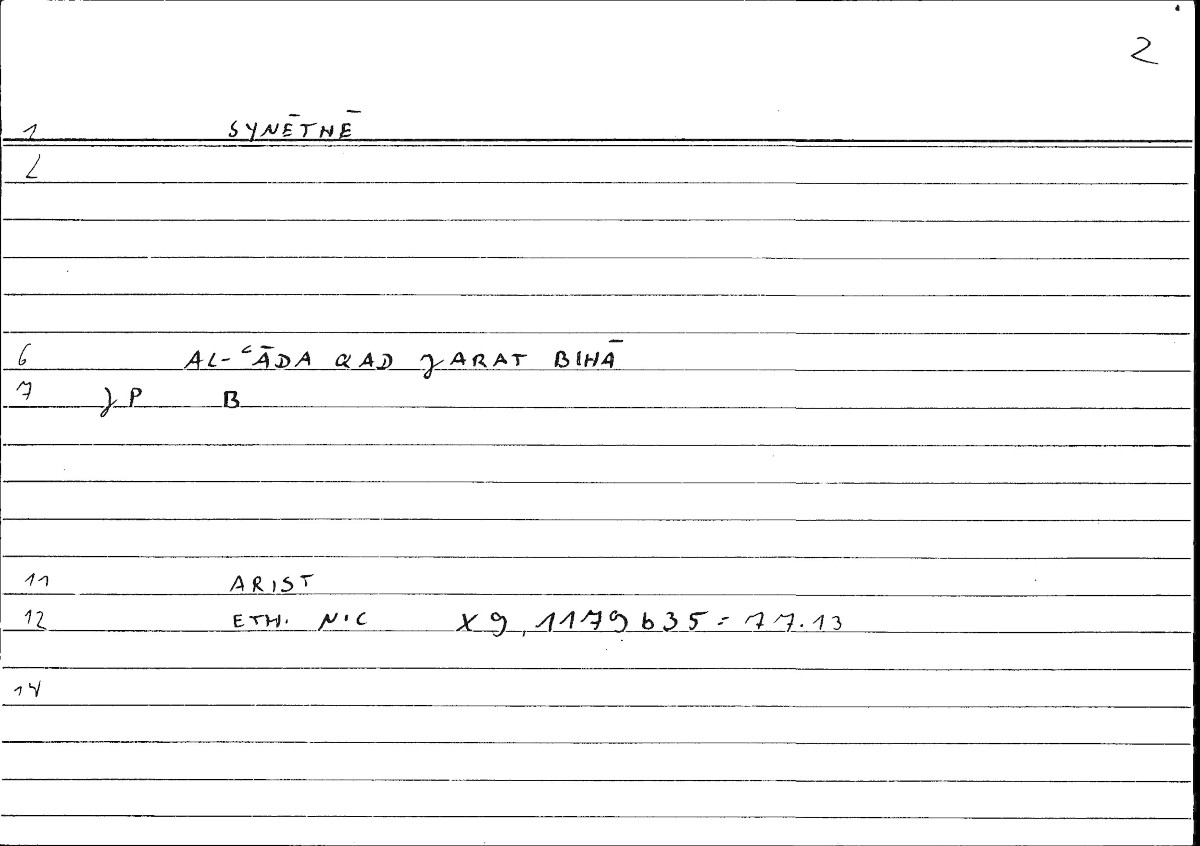 2
1 SYNĒTHĒ
2
6 AL-ʿĀDA QAD ǦARAT BIHĀ
7 ǦP B
11 ARIST
12 ETH. NIC X 9, 1179 b 35 = 77.13
14